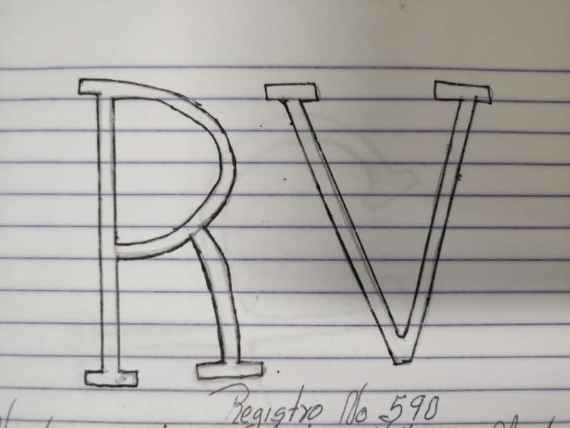 RV
Registro No 590